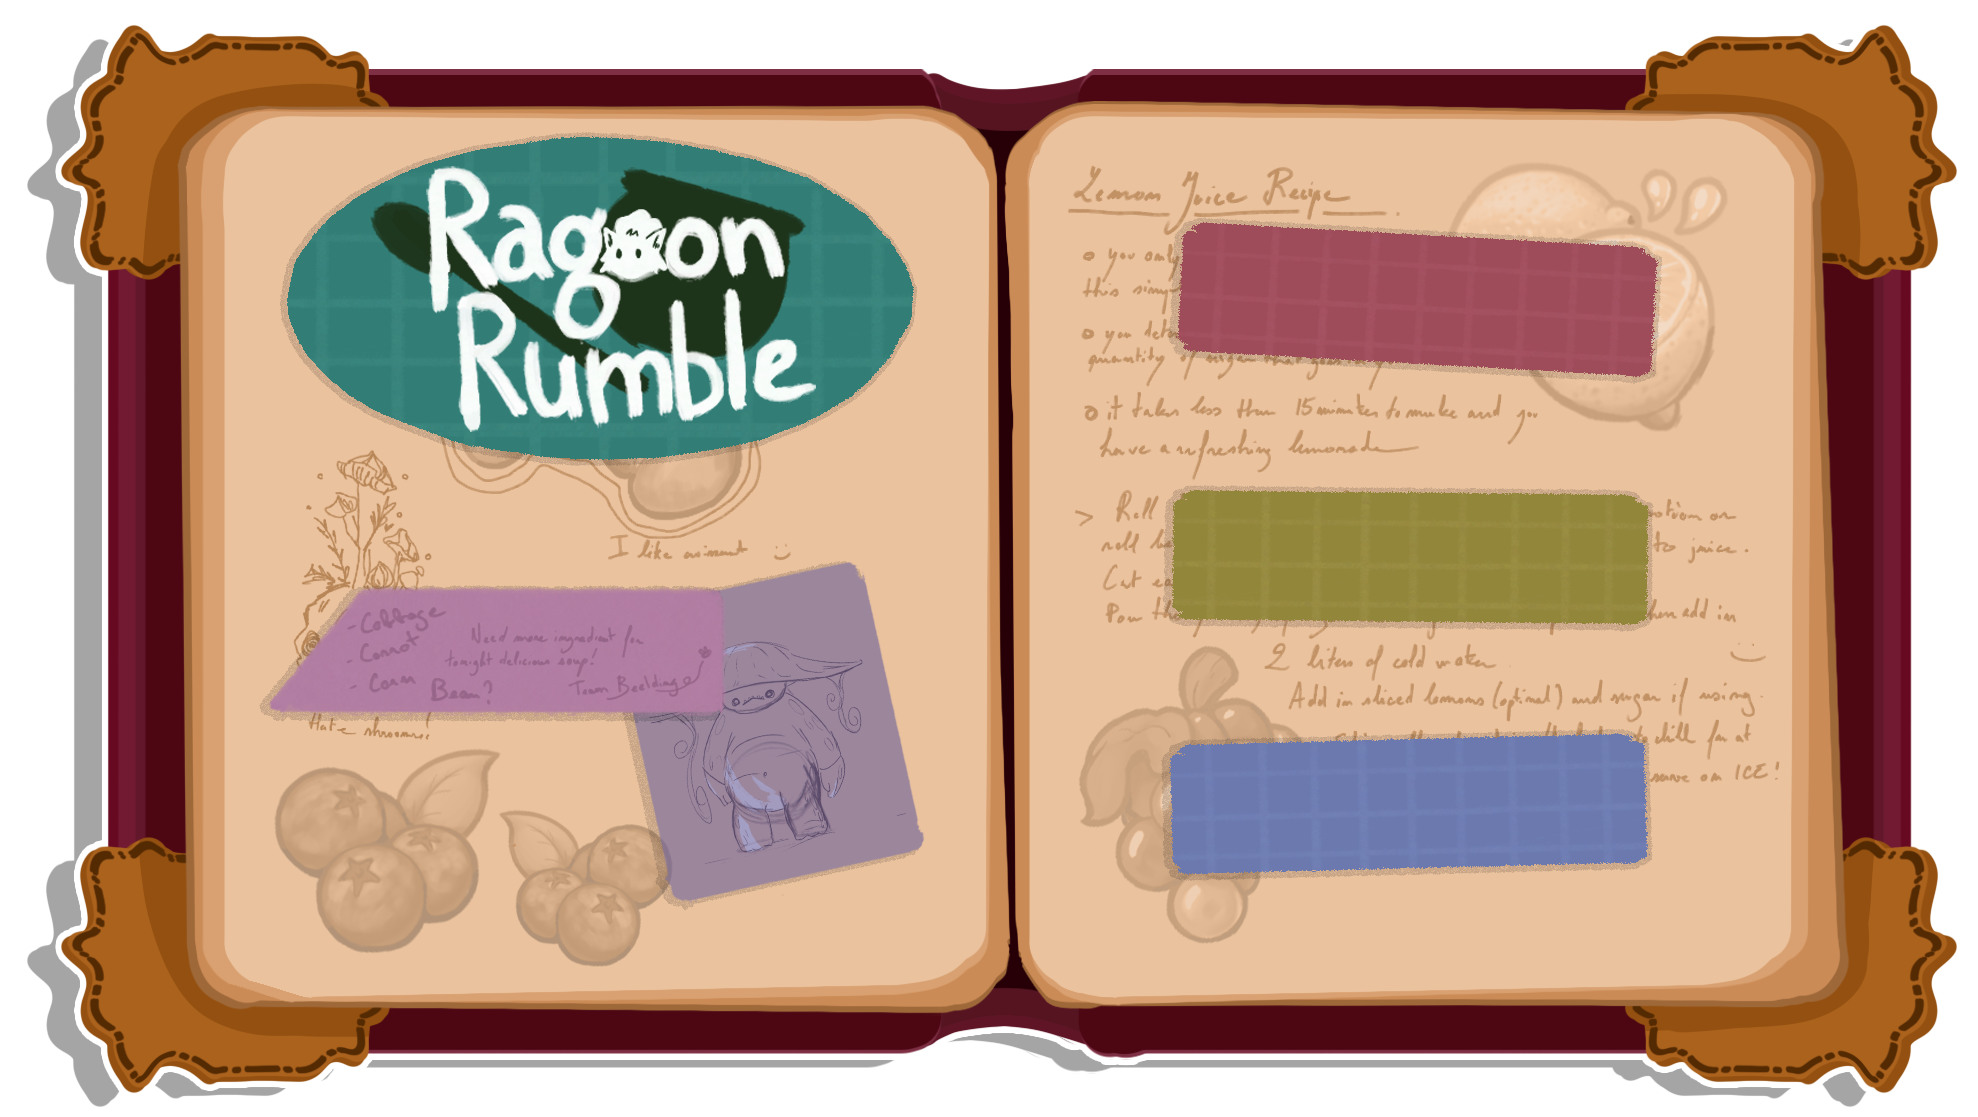 Ragoon
Rumble
I like
:)
- Cabbage
- Carrot
- Corn
Bean?
Need more ingredient for
tonight delicious soup!
Team Beelding
Hate shrooms!
Lemon Juice Recipe
o you only
this
o you
quantity of sugar that you
o it takes less than 15 minutes to make and you
have a refreshing lemonade
> Roll or
roll to juice.
Cut
Pour add in
2 liters of cold water
:)
Add in sliced lemons (optinal) and sugar if using.
to chill for at
serve on ICE!